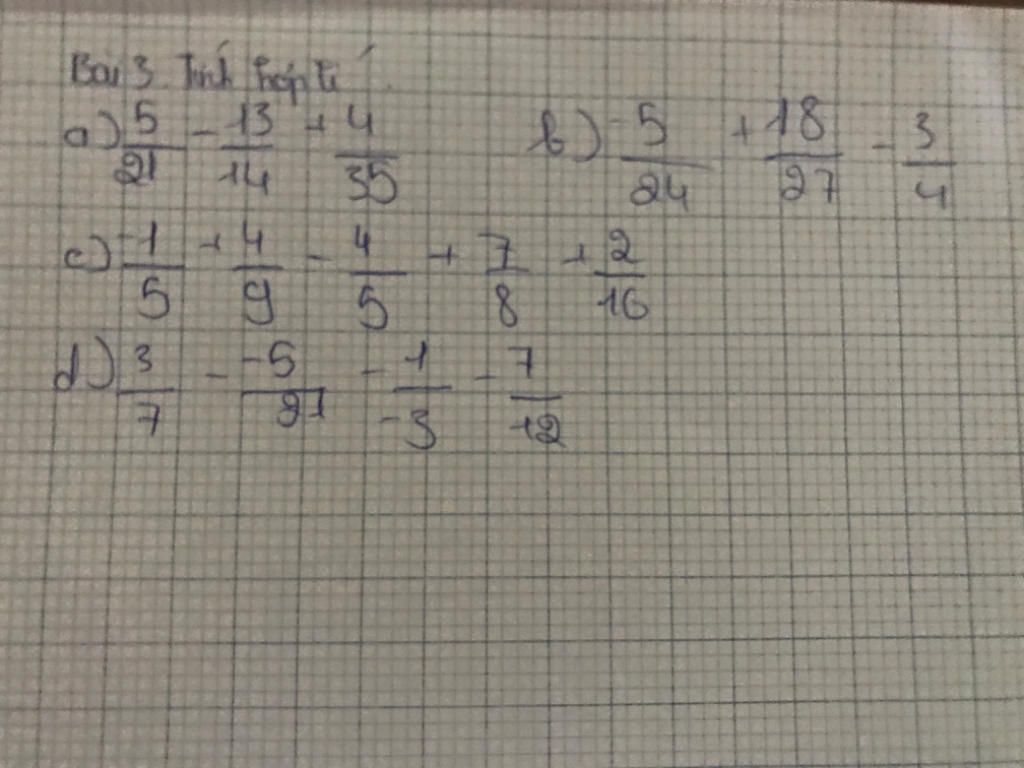 Bài 3. Tính hợp lí
a) 5/21 - 13/14 + 4/35 b) -5/24 + 18/27 - 3/4
c) -1/5 + 4/9 - 4/5 + 7/8 + 2/16
d) 3/7 - -5/21 - 1/-3 - 7/12